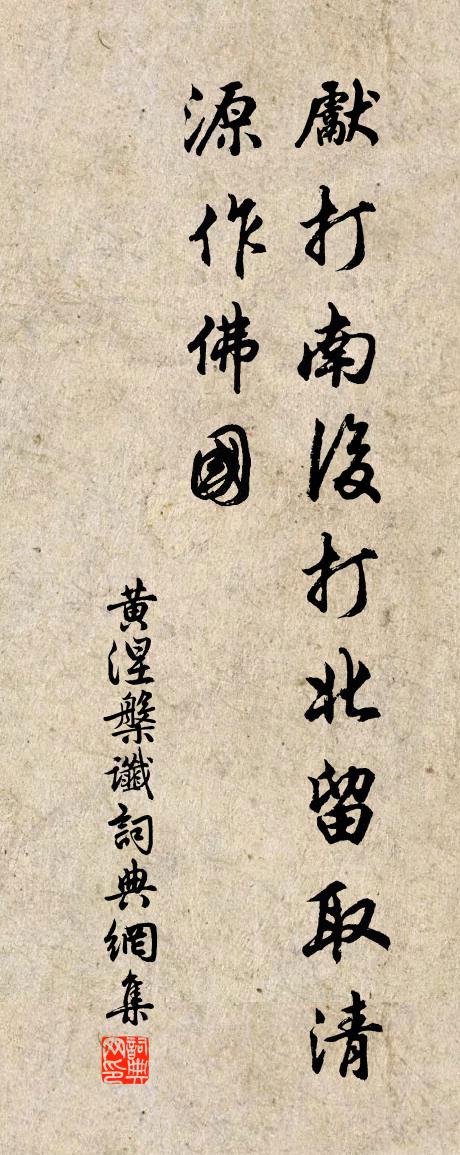 獻打南後打北留取清
源作佛國
黃涅槃讖詞典網集
詞典
网印